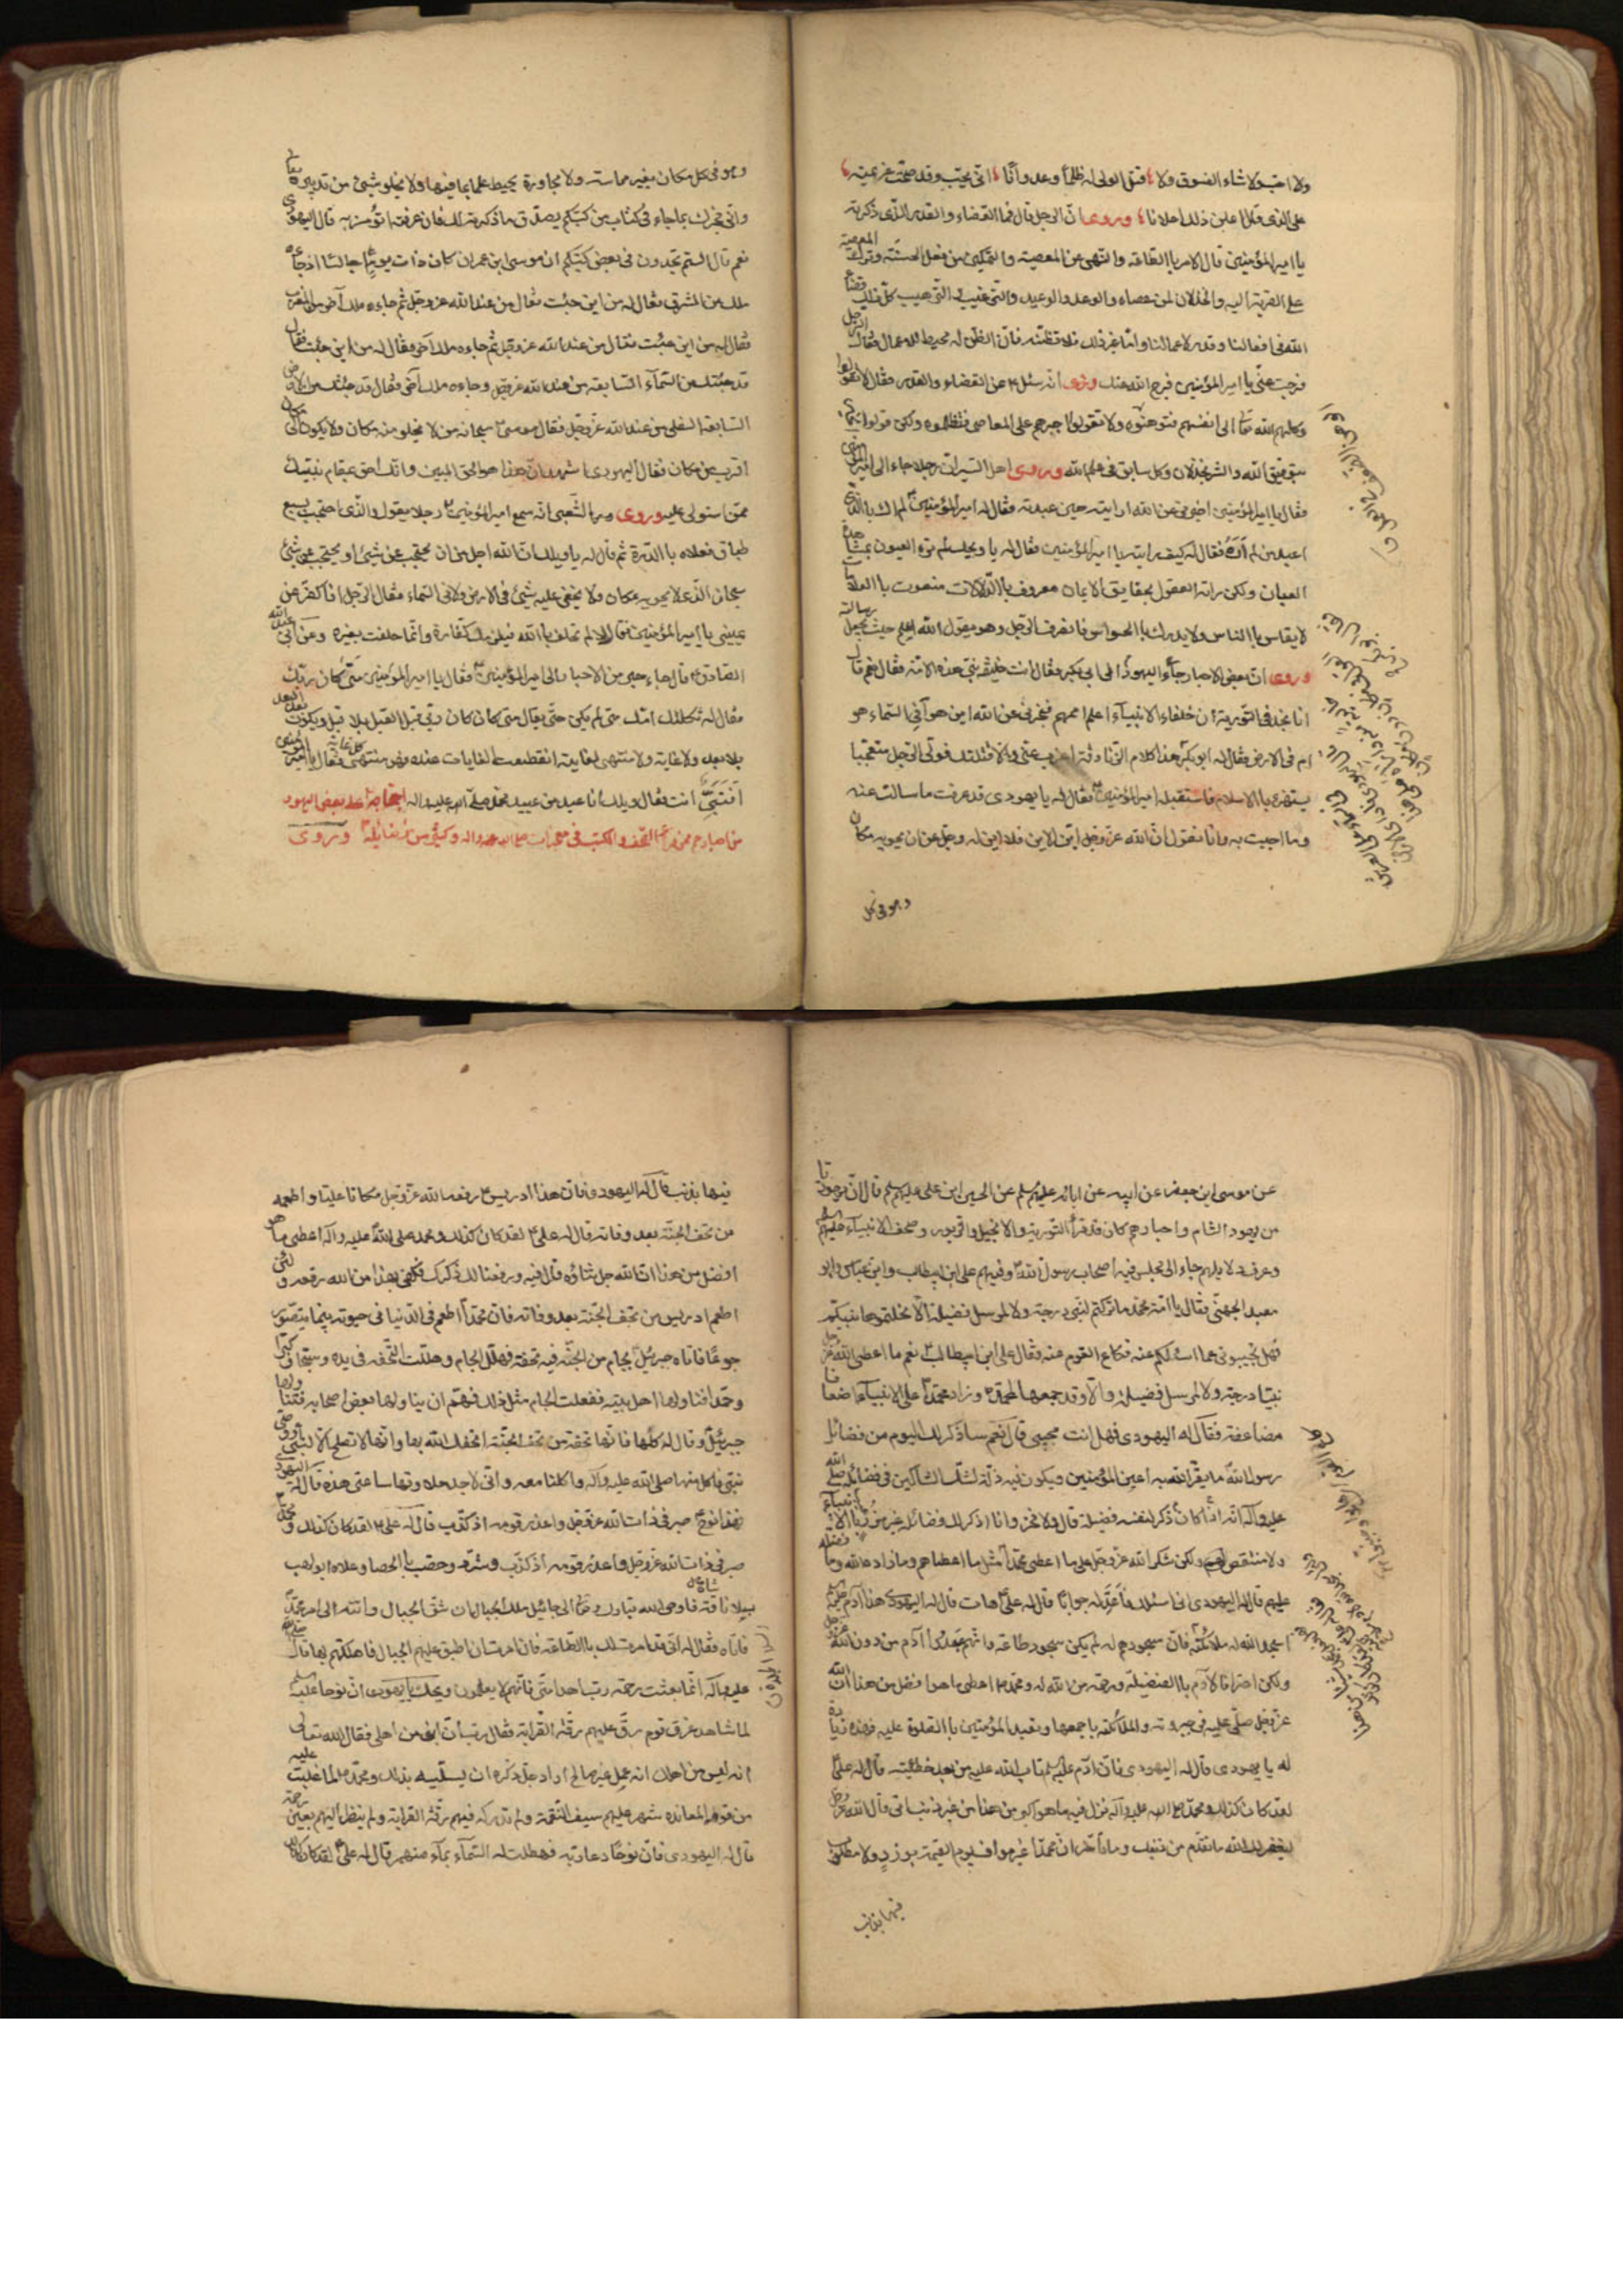 ولا احب ولا شاء الفسوق ولا قتل الولى له ظلما وعدوانا انى يحب وقد صحت عزيمته
على الذى قتل اعلن ذلك اعلانا وروى ان الرجل قال فما القضاء والقدر الذى ذكرته
يا امير المؤمنين قال الامر باالطاعة والنهى عن المعصية والتمكين من فعل الحسنة وترك المعصية
على القربة اليه والخذلان لمن عصاه والوعد والوعيد والترغيب والترهيب كل ذلك قضاء
الله فى افعالنا وقدره لاعمالنا واما غير ذلك فلا تظنه فان الظن له محيط للاعمال فقال الرجل
فرجت عنى يا امير المؤمنين فرج الله عنك وروى انه سئل عن القضاء والقدر فقال لا تقولوا
وكلهم الله الى انفسهم فتوهنوه ولا تقولوا اجبرهم على المعاصى فتظلموه ولكن قولوا الخير
بتوفيق الله والشر بخذلان وكل سابق فى علم الله وروى اهل السير ان رجلا جاء الى امير المؤمنين
فقال يا امير المؤمنين اخبرنى عن الله ارايته حين عبدته فقال له امير المؤمنين لم اك باالذى
اعبد من لم اره فقال له كيف رايته يا امير المؤمنين فقال له يا ويحك لم تره العيون بمشاهدة
العيان ولكن راته العقول بحقايق الايمان معروف باالدلالات منعوت باالعلامات
لا يقاس باالناس ولا يدرك باالحواس فانصرف الرجل وهو يقول الله اعلم حيث يجعل رسالته
وروى ان بعض الاحبار جاء اليهود الى ابى بكر فقال انت خليفة نبى هذه الامة فقال نعم قال
انا نجد فى التورية ان خلفاء الانبياء اعلم اممهم فخبرنى عن الله اين هو آفى السماء هو
ام فى الارض فقال له ابو بكر هذا كلام الزنادقة اعزب عنى والا قتلتك فولى الرجل متعجبا
يستهزء باالاسلام فاستقبله امير المؤمنين فقال له يا يهودى قد عرفت ما سالت عنه
وما اجبت به وانا نقول ان الله عز وجل اين الاين فلا اين له وجل عن ان يحويه مكان
وهو فى كل
وهو فى كل مكان بغير مماسة ولا مجاورة يحيط علما بما فيها ولا يخلو شئ من تدبيره تعالى
وانى مخبرك بما جاء فى كتاب من كتبكم يصدق ما ذكرته لك فان عرفته اتؤمن به قال اليهودى
نعم قال الستم تجدون فى بعض كتبكم ان موسى ابن عمران كان ذات يوم جالسا اذ جاءه
ملك من المشرق فقال له من اين جئت فقال من عند الله عز وجل ثم جاءه ملك آخر من المغرب
فقال له من اين جئت فقال من عند الله عز وجل ثم جاءه ملك آخر فقال له من اين جئت فقال
قد جئتك من السمآء السابعة من عند الله عز وجل وجاءه ملك آخر فقال قد جئتك من الارض
السابعة السفلى من عند الله عز وجل فقال موسى سبحانه من لا يخلو منه مكان ولا يكون الى مكان
اقرب من مكان فقال اليهودى اشهد ان هذا هو الحق المبين وانك احق بمقام نبيك
ممن استولى عليه وروى الشعبى انه سمع امير المؤمنين رجلا يقول والذى احتجب بسبع
طباق فعلاه باالدرة ثم قال له يا ويلك ان الله اجل من ان يحتجب عن شئ او يحتجب عنه شئ
سبحان الذى لا يحويه مكان ولا يخفى عليه شئ فى الارض ولا فى السماء فقال الرجل افاكفر عن
يمينى يا امير المؤمنين فقال لا لم تحلف باالله فيلزمك كفارة وانما حلفت بغيره وعن ابى عبد الله
الصادق قال جاء حبر من الاحبار الى امير المؤمنين فقال يا امير المؤمنين متى كان ربك
فقال له ثكلتك امك متى لم يكن حتى يقال متى كان كان ربى قبل القبل بلا قبل ويكون بعد البعد
بلا بعد ولا غاية ولا منتهى لغايته انقطعت الغايات عنده فهو منتهى كل غاية فقال يا امير المؤمنين
افنبى انت فقال ويلك انا عبد من عبيد محمد صلى الله عليه واله احتجاجه على بعض اليهود
من احبارهم ممن قرأ الصحف والكتب فى معجزات النبى صلى الله عليه واله وكثير من فضائله وروى
عن موسى ابن جعفر عن ابيه عن ابائه عليهم السلم عن الحسين ابن على عليهم السلم قال ان يهوديا
من يهود الشام واحبارهم كان قد قرأ التورية والانجيل والزبور وصحف الانبياء عليهم السلم
وعرف دلايلهم جاء الى مجلس فيه اصحاب رسول الله وفيهم على ابن ابيطالب وابن عباس وابو
معبد الجهنى فقال يا امة محمد ما تركتم لنبى درجة ولا لمرسل فضيلة الا نحلتموها نبيكم
فهل تجيبونى عما اسئلكم عنه فكاع القوم عنه فقال على ابن ابيطالب نعم ما اعطى الله عز وجل
نبيا درجة ولا لمرسل فضيلة والا وقد جمعها لمحمد وزاد محمدا على الانبياء اضعافا
مضاعفة فقال له اليهودى فهل انت مجيبى قال نعم ساذكر لك اليوم من فضائل
رسول الله ما يقر الله به اعين المؤمنين ويكون فيه ازالة لشك الشاكين فى فضائله صلى الله
عليه وآله انه اذا كان ذكر لنفسه فضيلة قال ولا فخر وانا اذكر لك فضائله غير مزر باالانبياء
ولا منتقص لهم ولكن شكر الله عز وجل على ما اعطى محمدا مثل ما اعطاهم وما زاده الله وما فضله
عليهم قال له اليهودى انى اسئلك فاعد له جوابا قال له على هات قال له اليهودى هذا آدم
اسجد الله له ملائكته فان سجودهم له لم يكن سجود طاعة وانهم عبدوا آدم من دون الله عز وجل
ولكن اعترافا لآدم باالفضيلة ورحمة من الله له ومحمد اعطى ما هو افضل من هذا ان الله
عز وجل صلى عليه فى جبروته والملائكة باجمعها وتعبد المؤمنين باالصلوة عليه فهذه زيادة
له يا يهودى قال له اليهودى فان ادم عليه السلم تاب الله عليه من بعد خطيئته قال له على
لقد كان كذلك ومحمد صلى الله عليه وآله نزل فيه ما هو اكبر من هذا من غير ذنب اتى قال الله عز وجل
ليغفر لك الله ما تقدم من ذنبك وما تأخر ان محمدا غير مواف يوم القيمة بوزر ولا مطلوب
فيها بذنب
فيها بذنب قال له اليهودى فان هذا ادريس رفعه الله عز وجل مكانا عليا واطعمه
من تحف الجنة بعد وفاته قال له على لقد كان كذلك ومحمد صلى الله عليه وآله اعطى ما هو
افضل من هذا ان الله جل ثناؤه قال فيه ورفعنا لك ذكرك فكفى بهذا من الله رفعة ولئن
اطعم ادريس من تحف الجنة بعد وفاته فان محمدا اطعم فى الدنيا فى حيوته بينما يتضور
جوعا فاتاه جبرئيل بجام من الجنة فيه تحفة فهلل الجام وهللت التحفه فى يده وسبحا وكبرا
وحمدا فناولها اهل بيته ففعلت الجام مثل ذلك فهم ان يناولها بعض اصحابه فتناولها
جبرئيل وقال له كلها فانها تحفة من تحف الجنة اتحفك الله بها وانها لا تصلح الا لنبى او وصى
نبى فاكل منها صلى الله عليه وآله واكلنا معه وانى لاجد حلاوتها ساعتى هذه قال له اليهودى
فهذا نوح صبر فى ذات الله عز وجل واعذر قومه اذ كذب قال له على لقد كان كذلك ومحمد
صبر فى ذات الله عز وجل واعذر قومه اذ كذب وشرد وحصب باالحصا وعلاه ابو لهب
بسلا ناقة وشاة فاوحى الله تبارك وتعالى الى جائيل ملك الجبال ان شق الجبال وانته الى امر محمد
فاتاه فقال له انى قد امرت لك باالطاعة فان امرت ان اطبق عليهم الجبال فاهلكتهم بها قال صلى الله
عليه وآله انما بعثت رحمة رب اهد امتى فانهم لا يعلمون ويحك يا يهودى ان نوحا عليه السلم
لما شاهد غرق قومه رق عليهم رقة القرابة فقال رب ان ابنى من اهلى فقال الله تعالى
انه ليس من اهلك انه عمل غير صالح اراد جل ذكره ان يسليه بذلك ومحمد لما غلبت عليه
من قومه المعانده شهر عليهم سيف النقمة ولم تدركه فيهم رقة القرابة ولم ينظر اليهم بعين رحمة
قال له اليهودى فان نوحا دعا ربه فهطلت له السمآء بمآء منهمر قال له على لقد كان كذلك